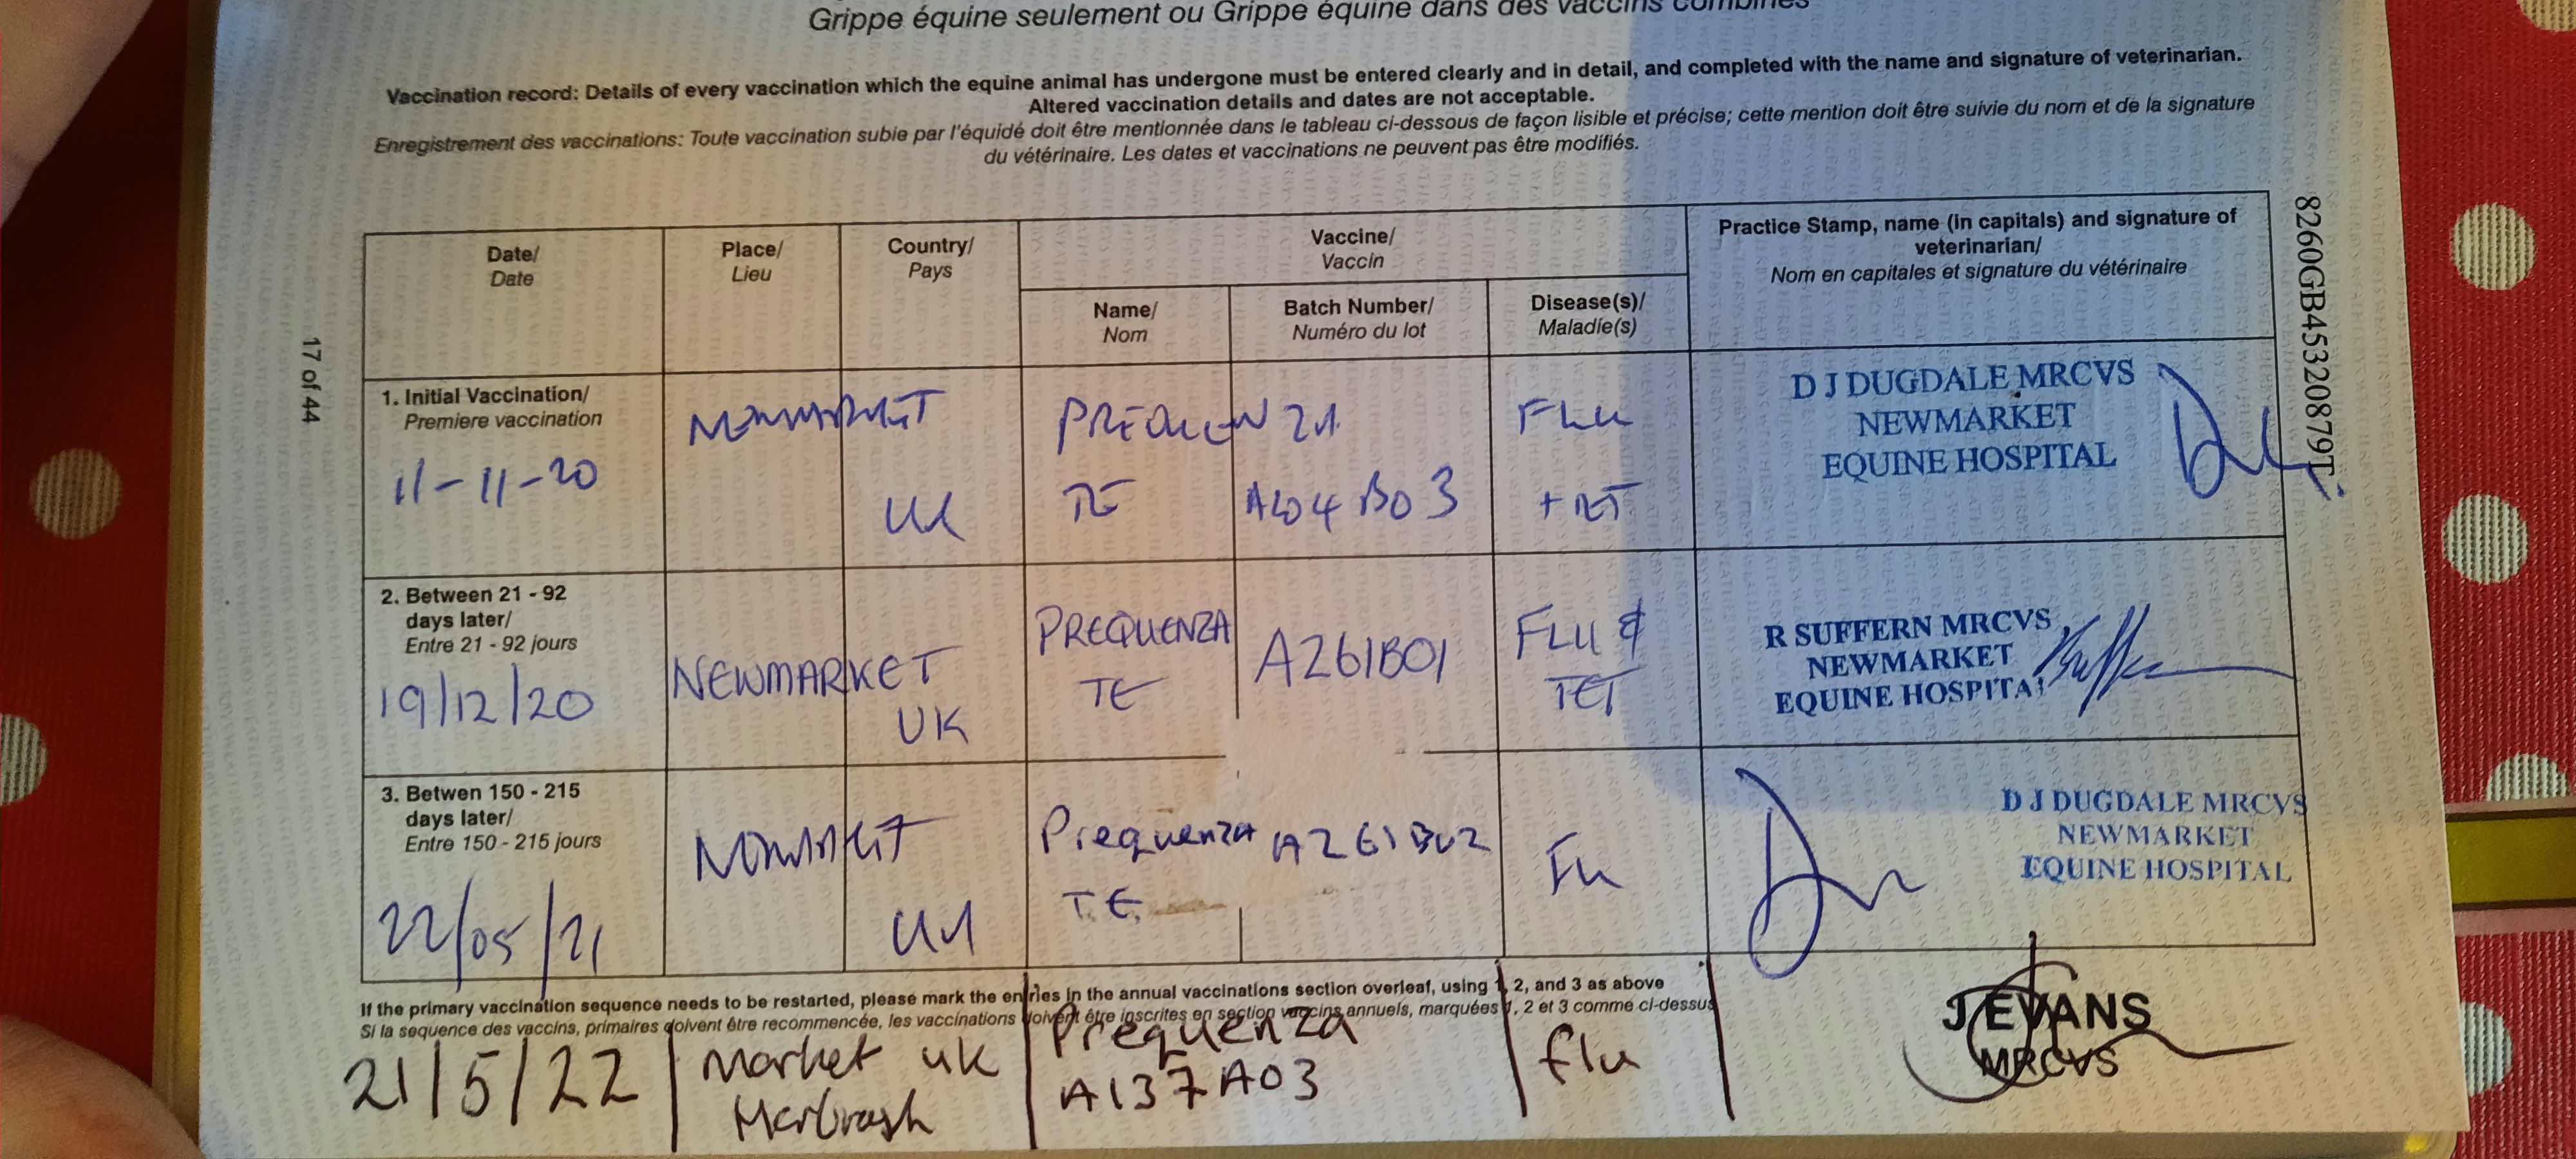 Grippe équine seulement ou Grippe équine dans des vaccins combinés
Vaccination record: Details of every vaccination which the equine animal has undergone must be entered clearly and in detail, and completed with the name and signature of veterinarian.
Altered vaccination details and dates are not acceptable.
Enregistrement des vaccinations: Toute vaccination subie par l'équidé doit être mentionnée dans le tableau ci-dessous de façon lisible et précise; cette mention doit être suivie du nom et de la signature
du vétérinaire. Les dates et vaccinations ne peuvent pas être modifiés.
Date/
Date
Place/
Lieu
Country/
Pays
Vaccine/
Vaccin
Name/
Nom
Batch Number/
Numéro du lot
Disease(s)/
Maladie(s)
Practice Stamp, name (in capitals) and signature of
veterinarian/
Nom en capitales et signature du vétérinaire
8260GB45320879T
17 of 44
1. Initial Vaccination/
Premiere vaccination
11-11-20
UK
TE
FLU
D J DUGDALE MRCVS
NEWMARKET
EQUINE HOSPITAL
2. Between 21 - 92
days later/
Entre 21 - 92 jours
19/12/20
NEWMARKET
UK
PREQUENZA
TE
A261B01
FLU &
TET
R SUFFERN MRCVS
NEWMARKET
EQUINE HOSPITAL
3. Betwen 150 - 215
days later/
Entre 150 - 215 jours
22/05/21
UK
Prequenza
TE
A261B02
Flu
D J DUGDALE MRCVS
NEWMARKET
EQUINE HOSPITAL
If the primary vaccination sequence needs to be restarted, please mark the entries in the annual vaccinations section overleaf, using 1, 2, and 3 as above
Si la sequence des vaccins, primaires doivent être recommencée, les vaccinations doivent être inscrites en section vaccins annuels, marquées 1, 2 et 3 comme ci-dessus
21/5/22
Market uk
Prequenza
A137A03
flu
J EVANS
MRCVS